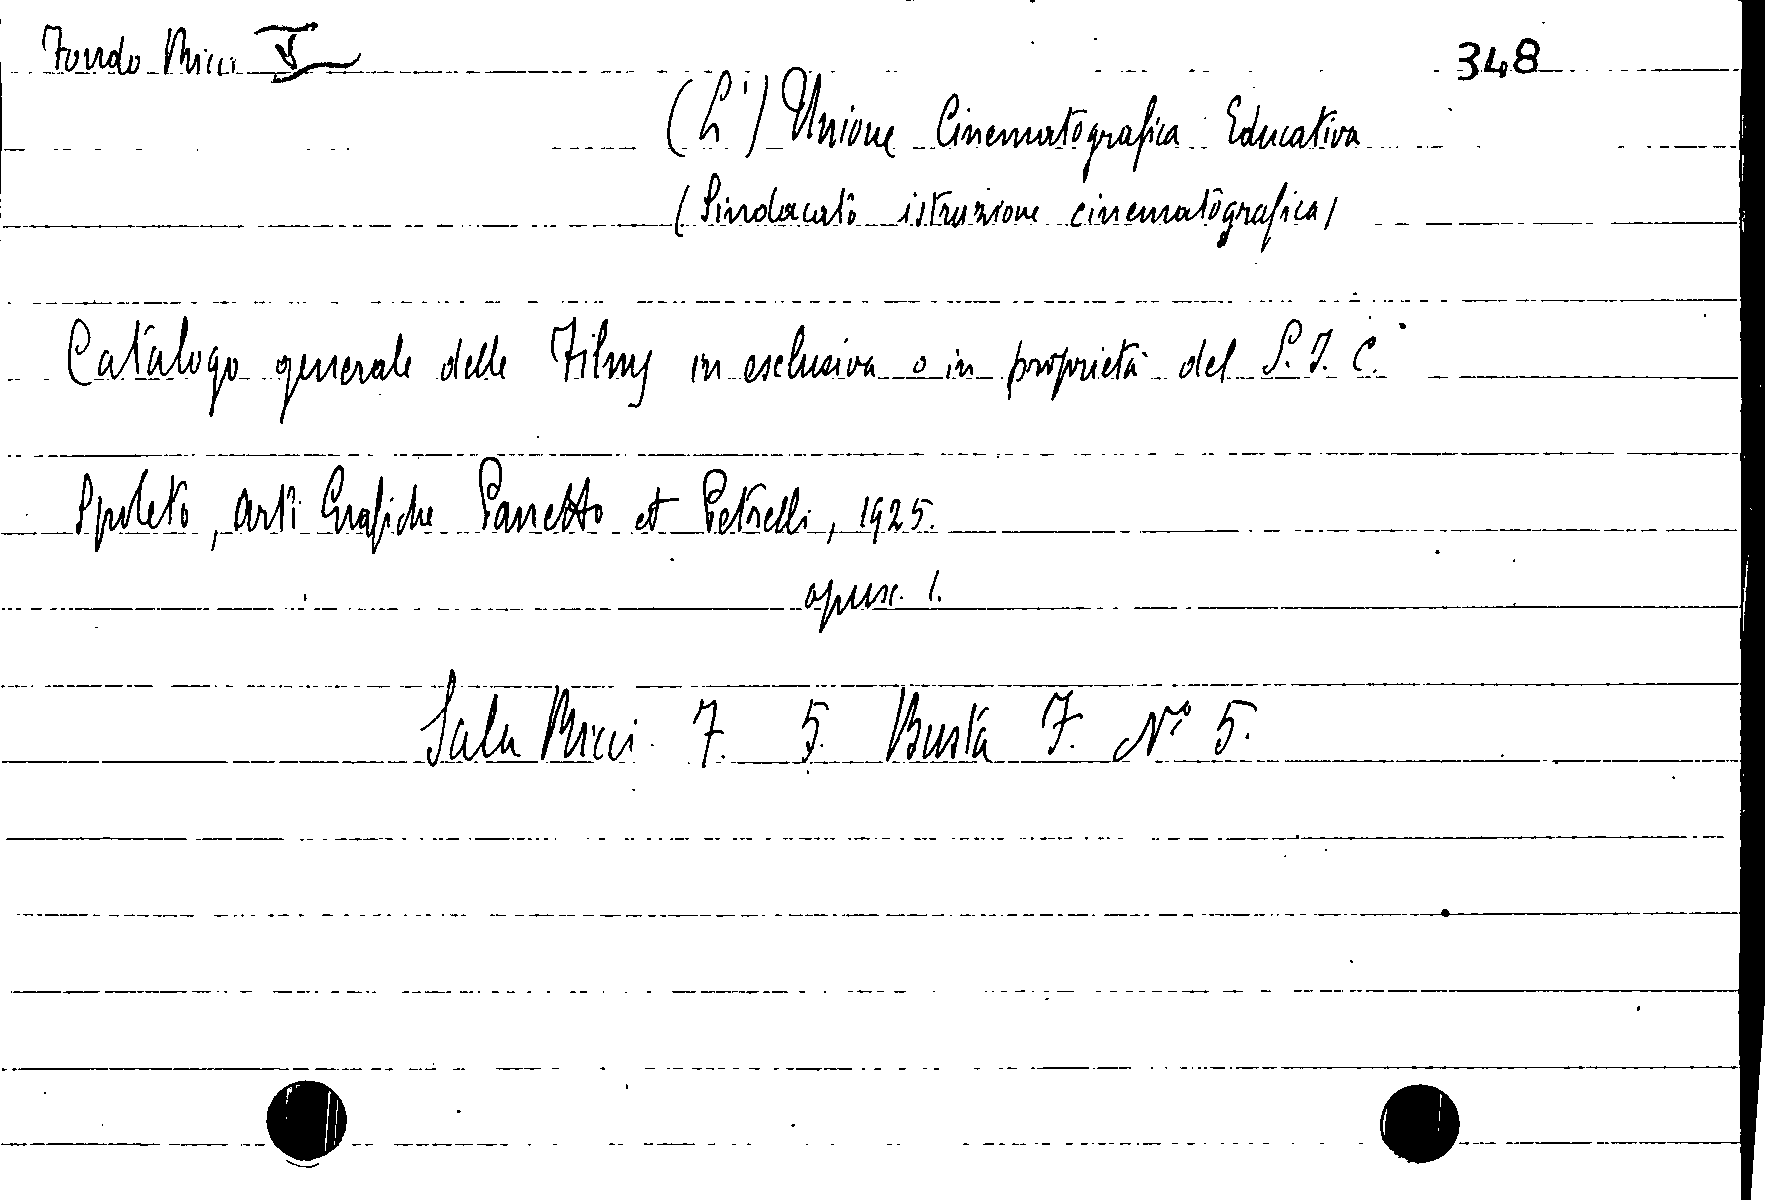 Fondo Ricci V
348
(L') Unione Cinematografica Educativa
(Sindacato istruzione cinematografica)
Catalogo generale delle Films in esclusiva o in proprietà del S. I. C.
Spoleto, Arti Grafiche Panetto et Petrelli, 1925.
opusc. 1.
Sala Ricci. 7. 5. Busta 7. N° 5.